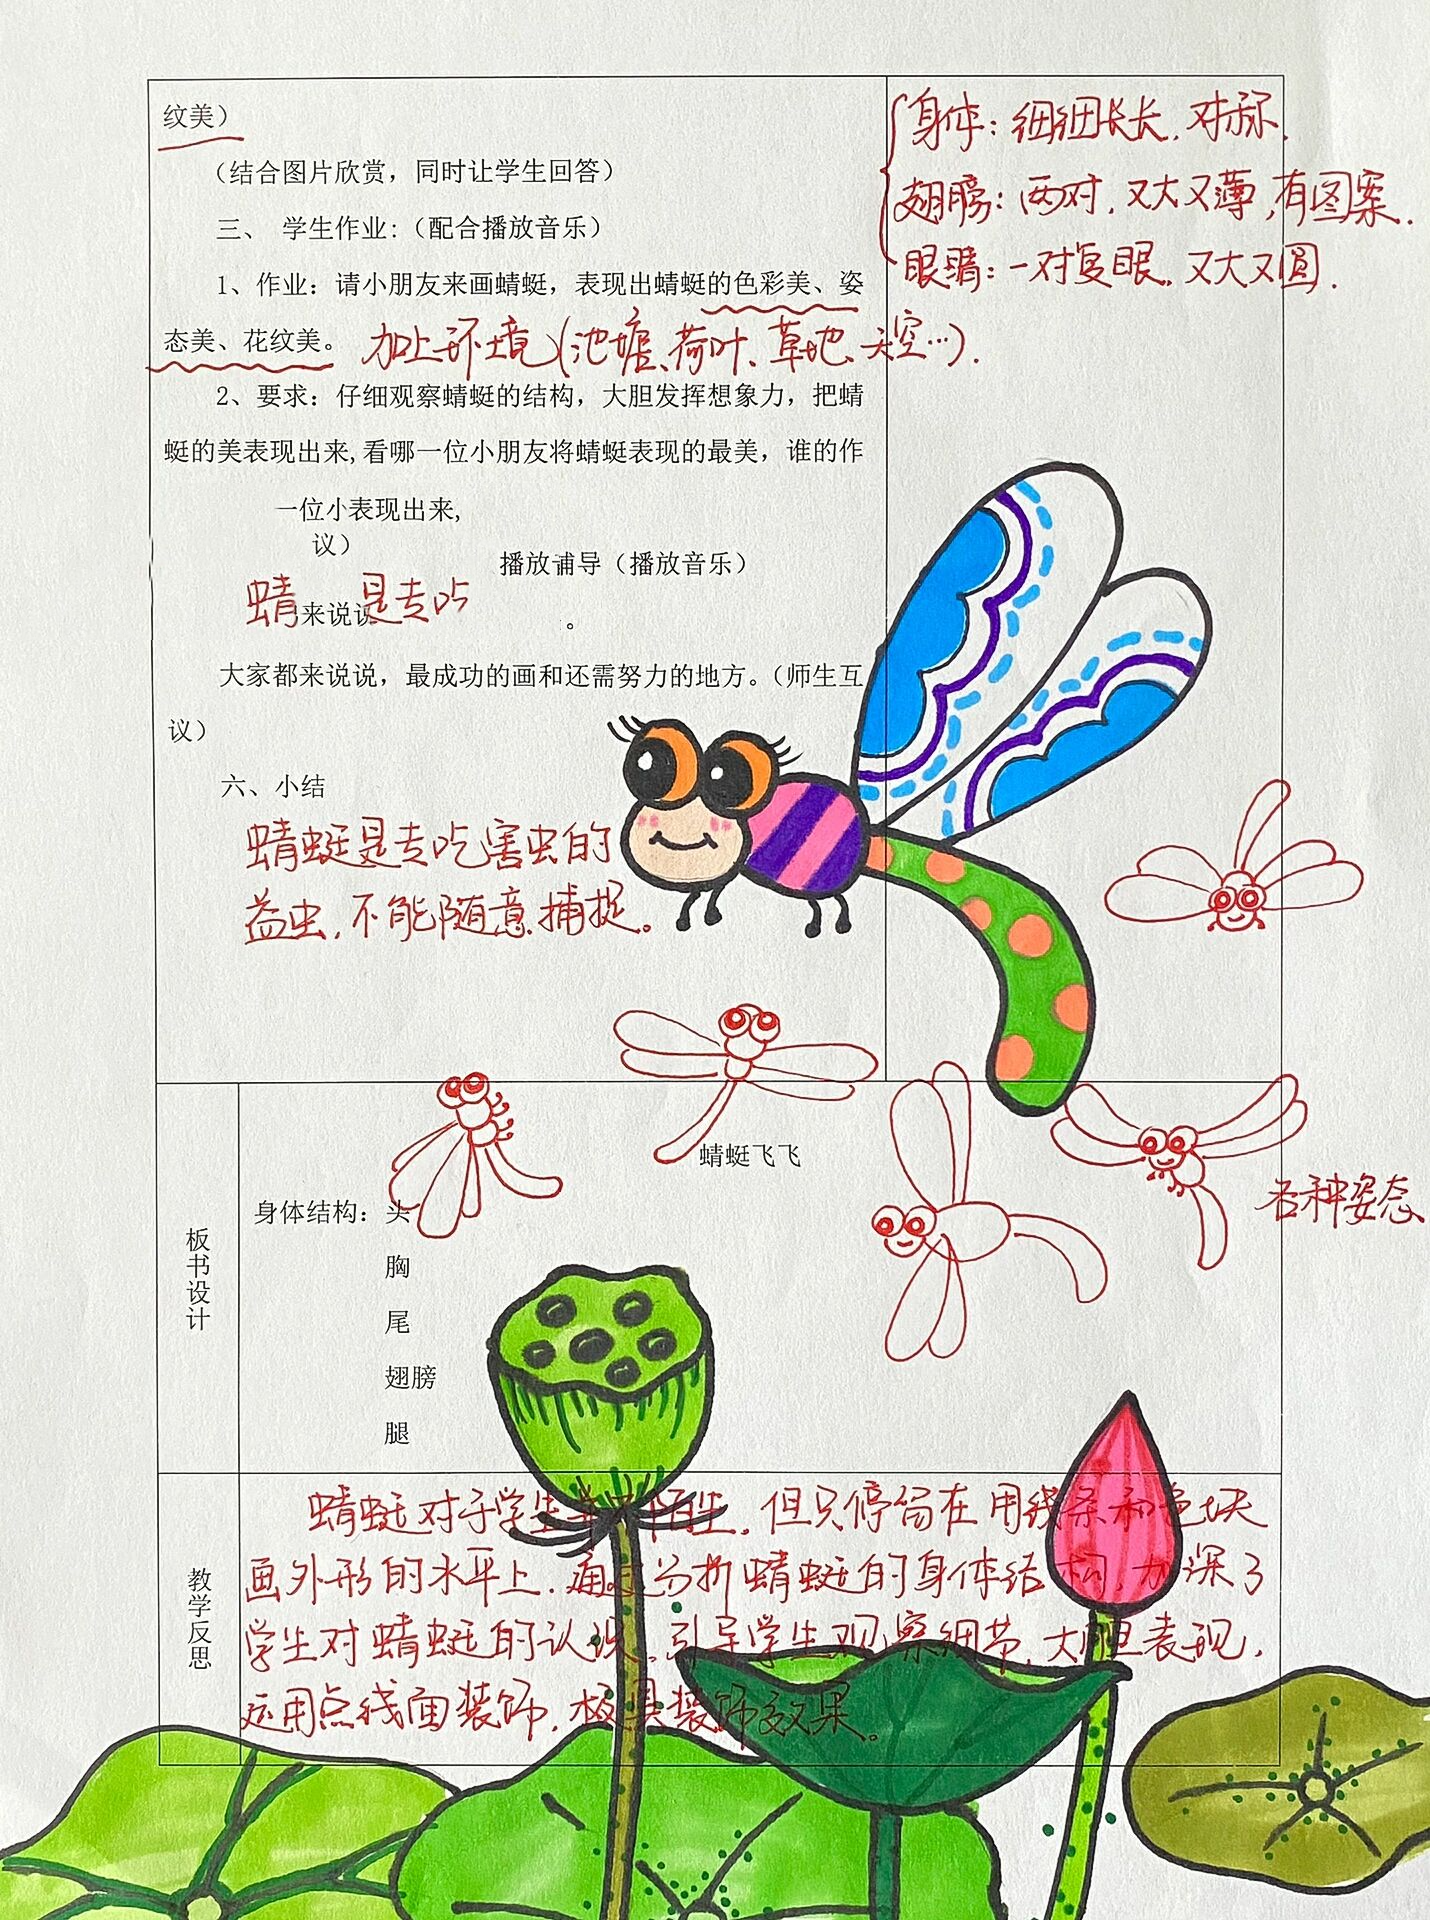 纹美）
（结合图片欣赏，同时让学生回答）
三、 学生作业:（配合播放音乐）
1、作业：请小朋友来画蜻蜓，表现出蜻蜓的色彩美、姿
态美、花纹美。 加上环境(池塘、荷叶、草地、天空…).
2、要求：仔细观察蜻蜓的结构，大胆发挥想象力，把蜻
蜓的美表现出来,看哪一位小朋友将蜻蜓表现的最美，谁的作
一位小表现出来,
议）
播放辅导（播放音乐）
蜻 来说说 是专吃
。
大家都来说说，最成功的画和还需努力的地方。（师生互
议）
六、小结
蜻蜓是专吃害虫的
益虫，不能随意捕捉。
身体：细细长长，对称.
翅膀：两对，又大又薄，有图案.
眼睛：一对复眼，又大又圆.
板书设计
蜻蜓飞飞
身体结构：头
胸
尾
翅膀
腿
各种姿态
教学反思
蜻蜓对于学生并不陌生，但只停留在用线条和色块
画外形的水平上. 通过分析蜻蜓的身体结构，加深了
学生对蜻蜓的认识，引导学生观察细节，大胆表现，
运用点线面装饰，极具装饰效果。